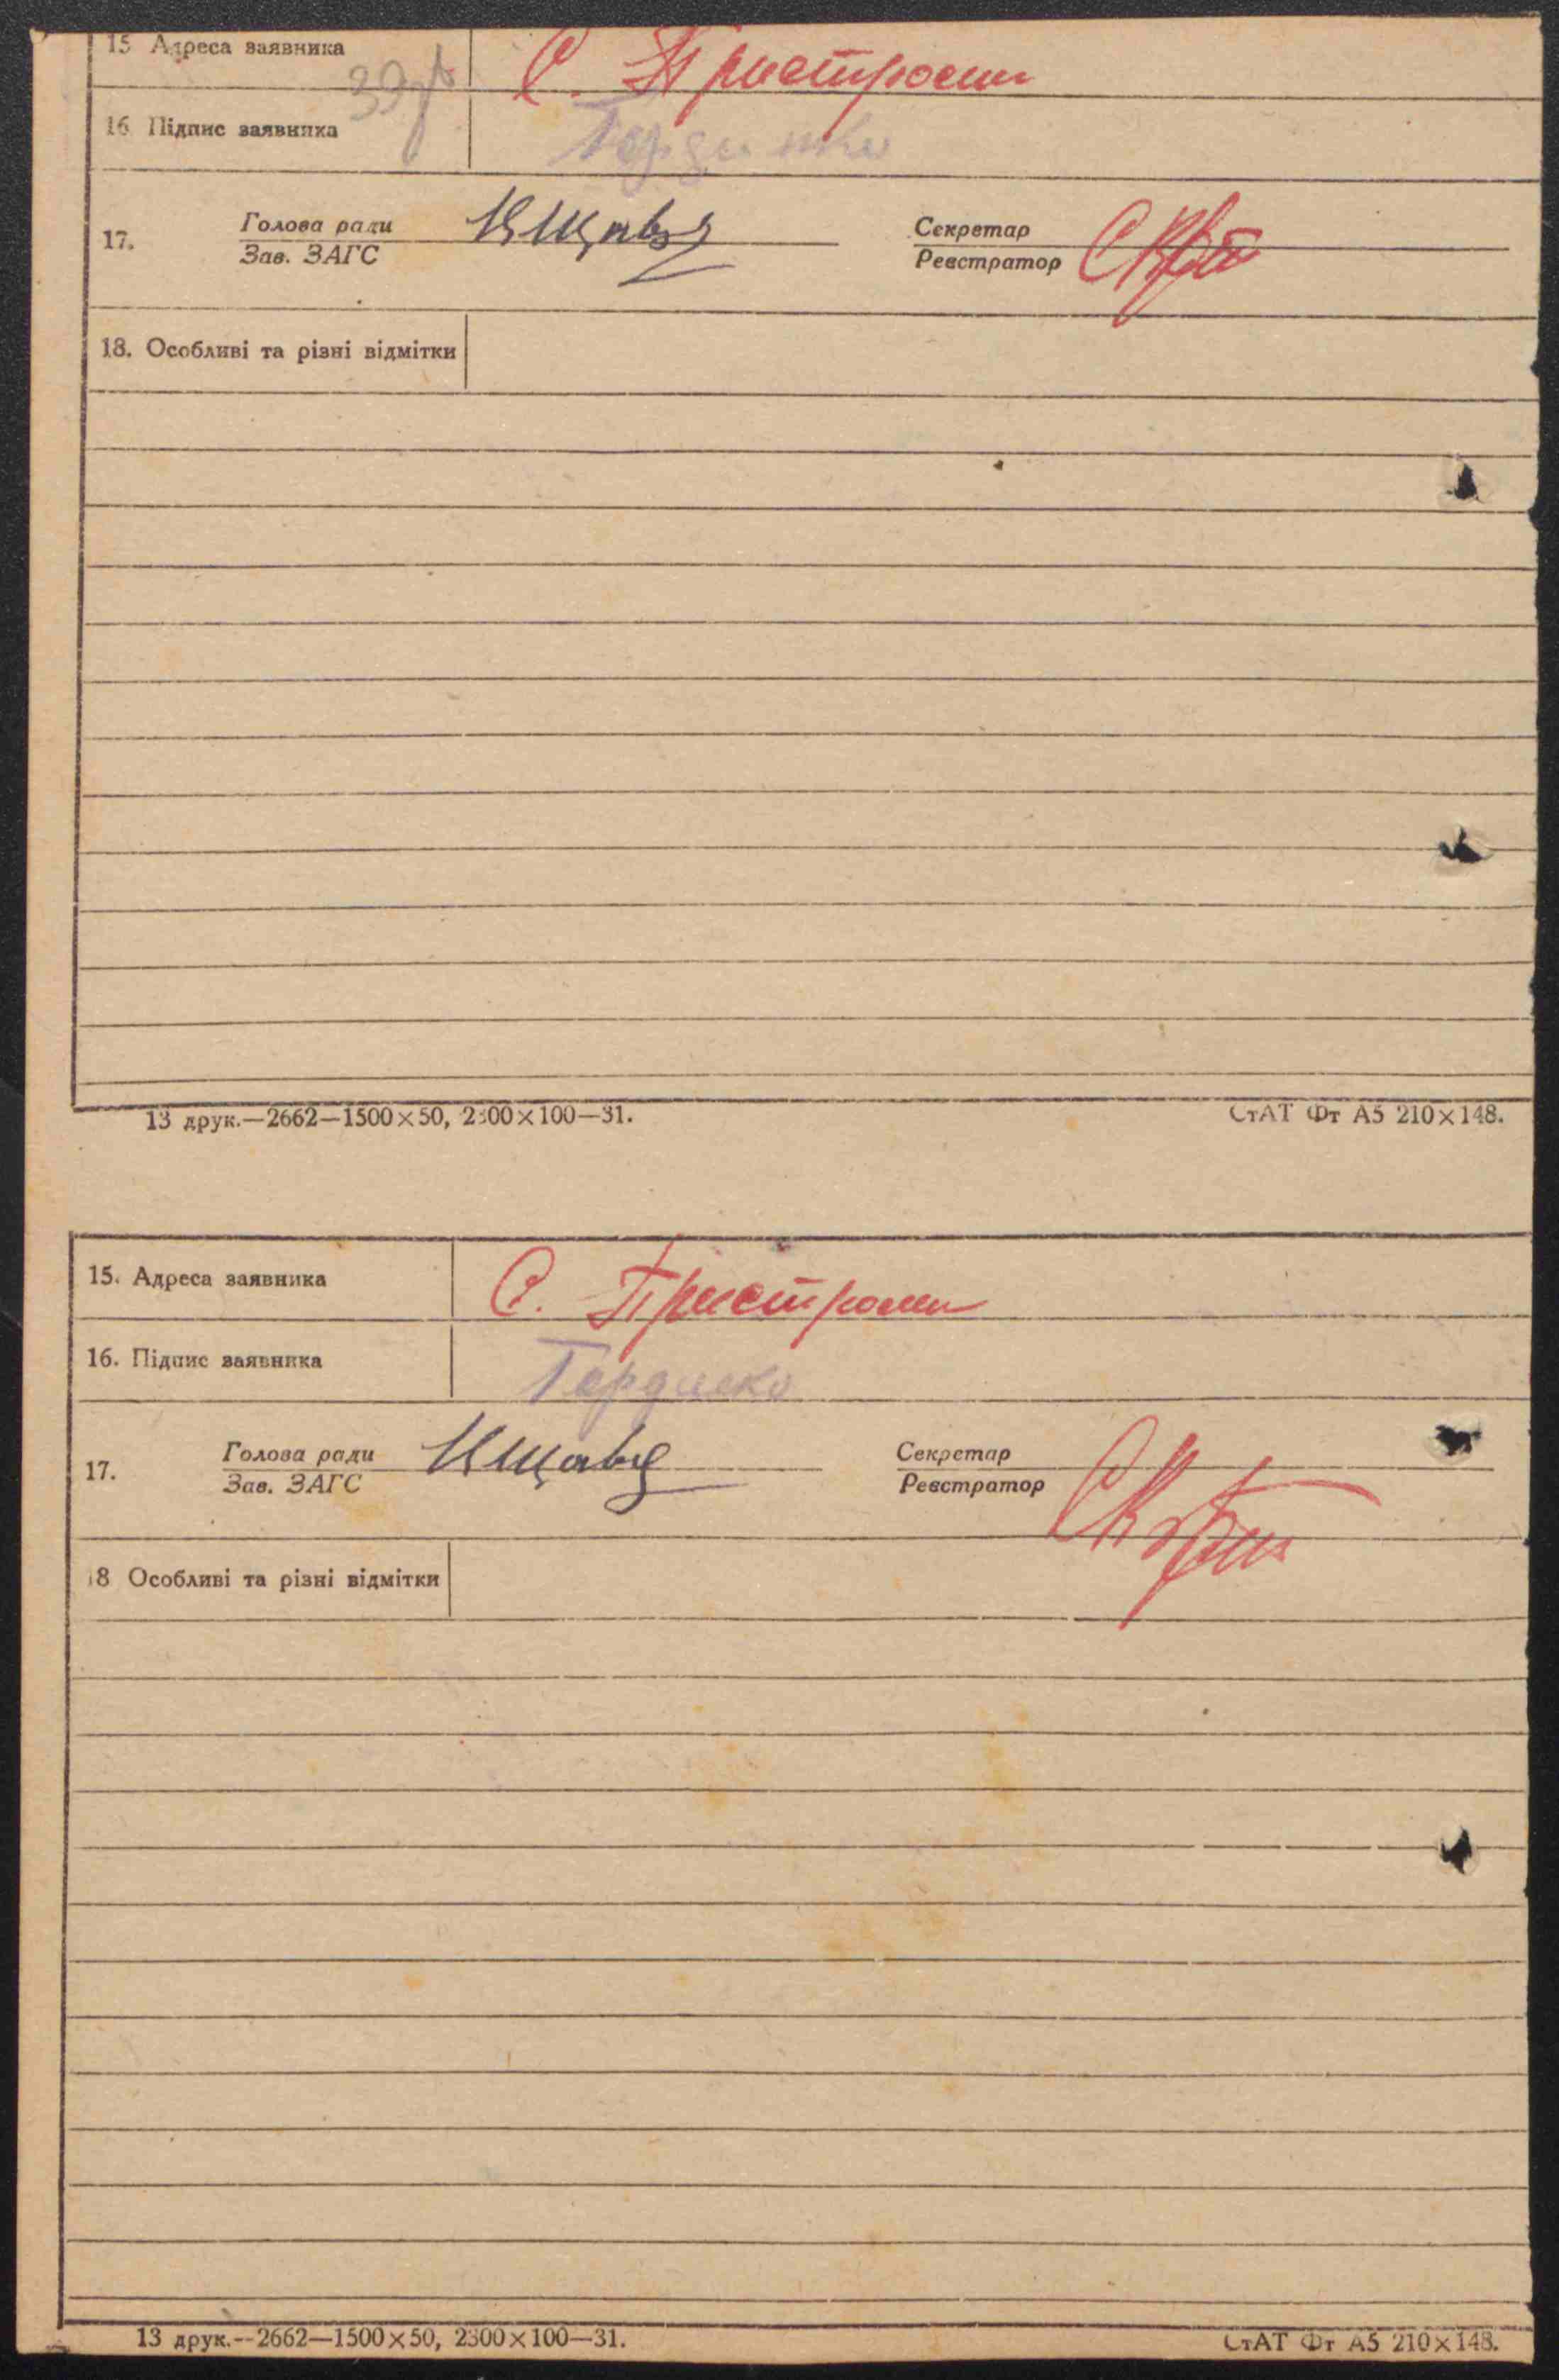 15 Адреса заявника С. Пристроми
39
16 Підпис заявника
17. Голова ради Секретар
Зав. ЗАГС Реєстратор
18. Особливі та різні відмітки
13 друк.—2662—1500×50, 2300×100—31. СтАТ Фт А5 210×148.
15. Адреса заявника С. Пристроми
16. Підпис заявника
17. Голова ради Секретар
Зав. ЗАГС Реєстратор
18 Особливі та різні відмітки
13 друк.—2662—1500×50, 2300×100—31. СтАТ Фт А5 210×148.